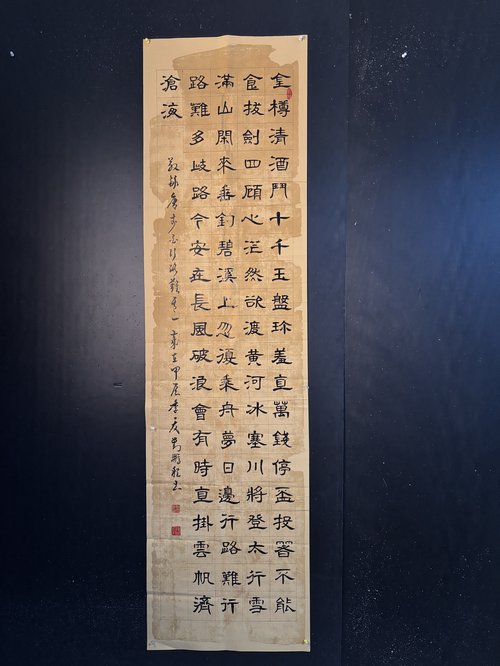 金樽清酒鬥十千玉盤珎羞直萬錢停盃投箸不能
食拔劍四顧心茫然欲渡黃河冰塞川將登太行雪
滿山閑來垂釣碧溪上忽復乘舟夢日邊行路難行
路難多歧路今安在長風破浪會有時直掛雲帆濟
滄海
敬録唐李白行路難其一 歲在甲辰季夏劉書